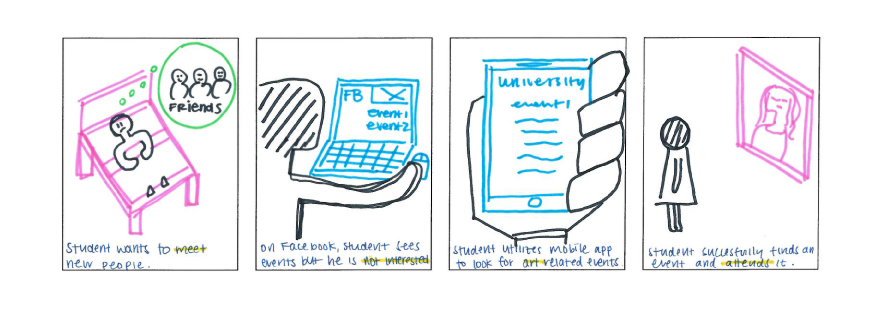 Friends
Student wants to meet
new people.
FB
event1
event2
On Facebook, student sees
events but he is not interested
University
event1
Student utilizes mobile app
to look for art related events
Student succesfully finds an
event and attends it.